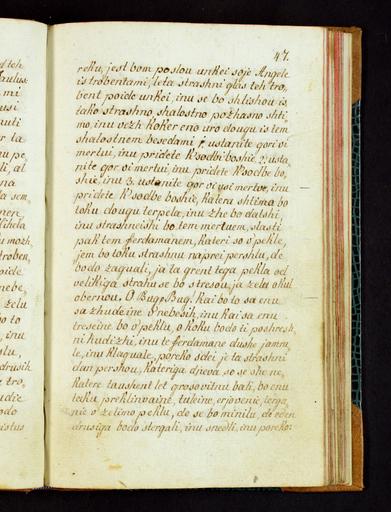 47.
reku, jest bom poslou unkei soje Angele
is trobentami, leta strashni glas teh tro,
bent poide unkei, inu se bo shlishou is
tako strashno, shalostno poshasno shti,
mo, inu vezh koker eno uro dougu is tem
shalostnem besedami, ustanite gori vi
mertui, inu pridete k'sodbi boshie, 2. usta,
nite gor vi mertui, inu pridete k'sodbe bo,
shie, inu 3. ustanite gor vi vsi mertve, inu
pridete k'sodbe boshie, katera shtima bo
toku dougu terpela, inu zhe bo dalshi,
inu strashneishi bo tem mertuem, slasti
pak tem ferdamanem, kateri so v'pekle,
jem bo toku strashnu naprei pershlu, de
bodo zaguali, ja ta grent tega pekla od
velikiga strahu se bo stresou, ja zelu okul
obernou. O Bug, Bug. kai bo to sa enu
sa zhudeine v'nebesih, inu kai sa enu
treseine bo v'peklu, o koku bodo ti poshresh,
ni hudizhi, inu te ferdamane dushe jamra,
le, inu klaguale, poreko sdei je ta strashni
dan pershou, kateriga djevd so se she ne,
katere taushent let grosovitnu bali, bo enu
taku preklinvaine, tuleine, erjovenie, terga,
nie v'zelimo peklu, de se bo minilu, de eden
drusiga bodo stergali, inu snedli, inu poreko: